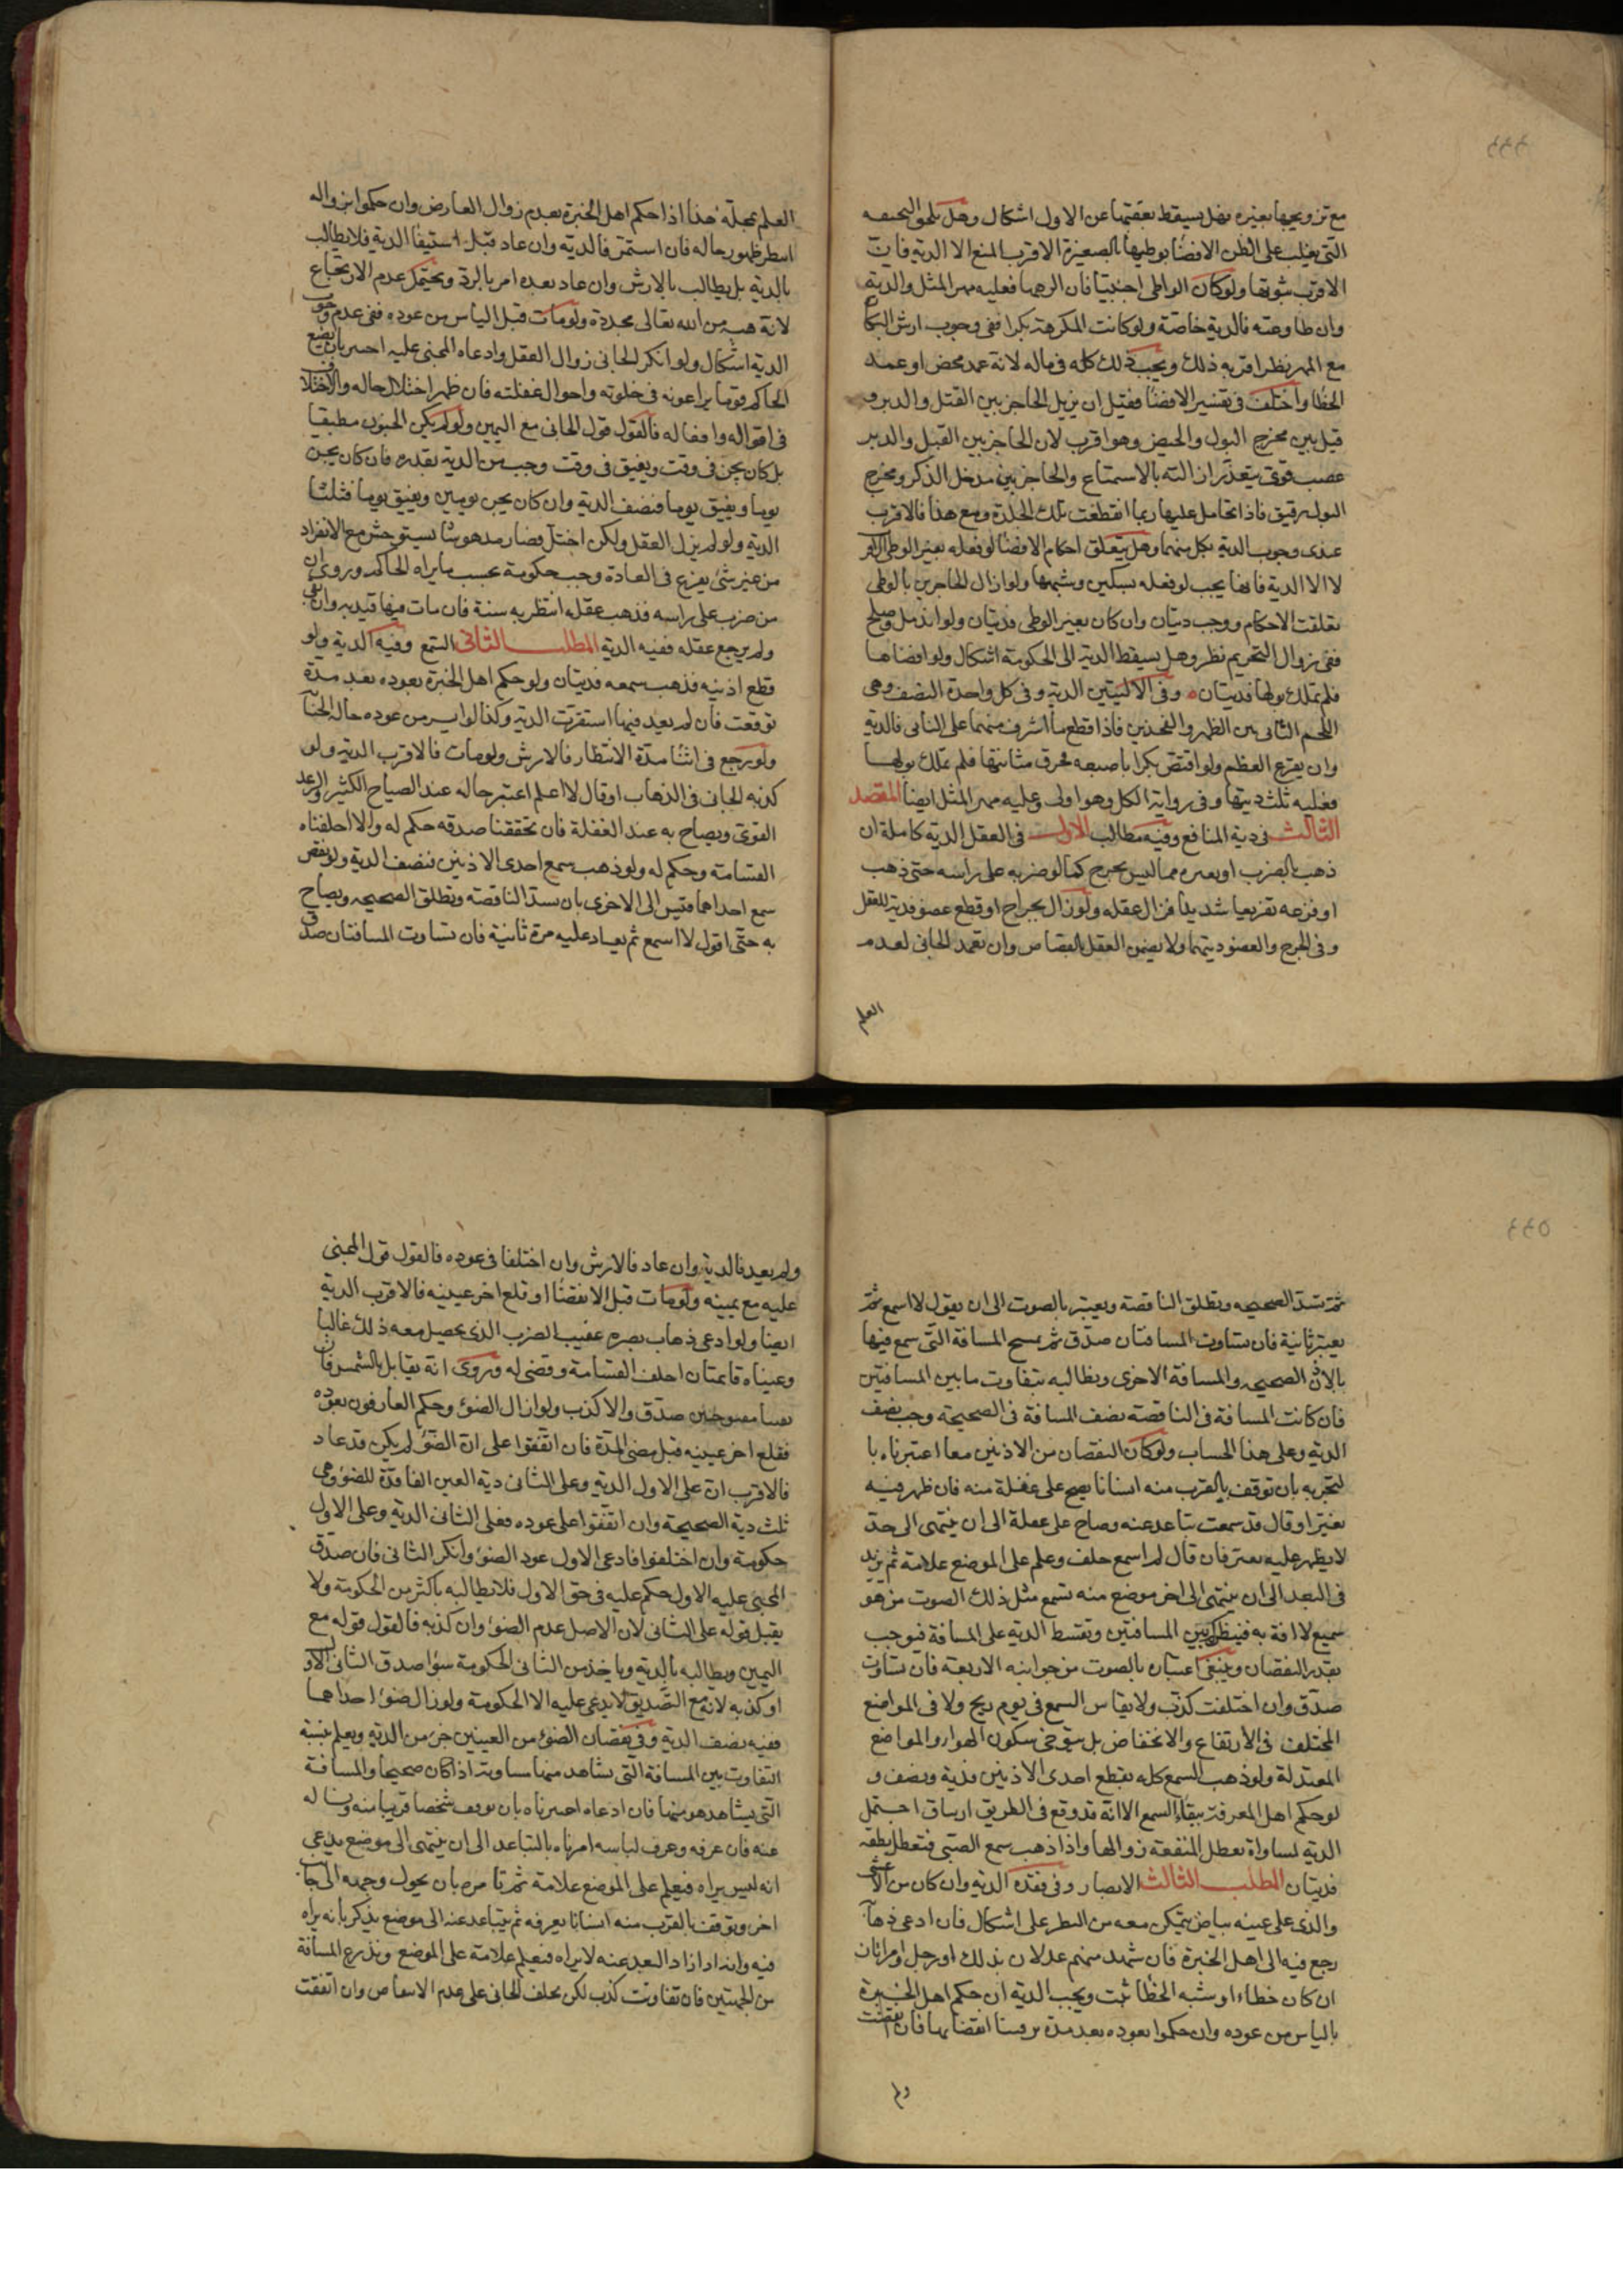 ٤٤٤
مع تزويجها بغيره فهل يسقط بعقتها عن الاول اشكال وهل تلحق النحيفه
التى يغلب على الظن الافضا بوطيها بالصغيرة الاقرب المنع الا الدية فان
الاقرب ثبوتها ولو كان الواطى اجنبيا فان الرجها فعليه مهر المثل والدية
وان طاوعته فالدية خاصة ولو كانت المكرهة بكرا ففى وجوب ارش البكا
مع المهر نظر اقربه ذلك ويجب ذلك كله فى ماله لانه عمد محض او عمد
الخطا واختلف فى تفسير الافضا فقيل ان يزيل الحاجز بين القبل والدبر و
قيل بين مخرج البول والحيض وهو اقرب لان الحاجز بين القبل والدبر
عصب قوى يتعذر ازالته بالاستمتاع والحاجز بين مدخل الذكر ومخرج
البول رقيق فاذا تحامل عليها ربما انقطعت تلك الجلدة ومع هذا فالاقرب
عندى وجوب الدية بكل منهما وهل يتعلق احكام الافضا لو فعله بغير الوطى الاقر
لا الا الدية فانها يجب لو فعله بسكين وشبهها ولو ازال الحاجزين بالوطى
تعلقت الاحكام ووجب ديتان وان كان بغير الوطى فديتان ولو اندمل وصلح
ففى زوال التحريم نظر وهل يسقط الدية الى الحكومة اشكال ولو افضاها
فلم تملك بولها فديتان وفى الاليتين الدية وفى كل واحدة النصف وهى
اللحم الناتى بين الظهر والفخذين فاذا قطع ما اشرف منهما على الناتى فالدية
وان لم يقرع العظم ولو افتض بكرا باصبعه فخرق مثانتها فلم تملك بولها
فعليه ثلث ديتها وفى رواية الكل وهو اولى وعليه مهر المثل ايضا المقصد
الثالث فى دية المنافع وفيه مطالب الاول فى العقل الدية كاملة ان
ذهب بالضرب او بغيره مما ليس بجرح كما لو ضربه على راسه حتى ذهب
او فزعه تفزيعا شديدا فزال عقله ولو زال بجراح او قطع عضو فدية للعقل
وفى الجرح والعضو ديتهما ولا يضمن العقل بالقصاص وان تعمد الجانى لعدم
العلم
العلم بمحله هذا اذا حكم اهل الخبرة بعدم زوال العارض وان حكموا بزواله
انتظر ظهور حاله فان استمر فالدية وان عاد قبل استيفا الدية فلا يطالب
بالدية بل يطالب بالارش وان عاد بعده امر بالرد ويحتمل عدم الارتجاع
لانه هبة من الله تعالى مجددة ولو مات قبل الياس من عوده ففى عدم وجوب
الدية اشكال ولو انكر الجانى زوال العقل وادعاه المجنى عليه اختبر بان يضع
الحاكم قوما يراعونه فى خلوته واحوال غفلته فان ظهر اختلال حاله والاختلا
فى اقواله وافعاله فالقول قول الجانى مع اليمين ولو لم يكن الجنون مطبقا
بل كان يجن فى وقت ويفيق فى وقت وجب من الدية بقدره فان كان يجن
يوما ويفيق يوما فنصف الدية وان كان يجن يومين ويفيق يوما فثلثا
الدية ولو لم يزل العقل ولكن اختل فصار مدهوشا يستوحش مع الانفراد
من غير شئ يفزع فى العادة وجب حكومة بحسب ما يراه الحاكم وروى ان
من ضرب على راسه فذهب عقله انتظر به سنة فان مات فيها قيد به وان بقى
ولم يرجع عقله ففيه الدية المطلب الثانى السمع وفيه الدية ولو
قطع اذنيه فذهب سمعه فديتان ولو حكم اهل الخبرة بعوده بعد مدة
توقعت فان لم يعد فيها استقرت الدية وكذا لو ايس من عوده حالة الجنا
ولو رجع فى اثنا مدة الانتظار فالارش ولو مات فالاقرب الدية ولو
كذبه الجانى فى الذهاب او قال لا اعلم اعتبر حاله عند الصياح الكثير والرعد
القوى ويصاح به عند الغفلة فان تحققنا صدقه حكم له والا احلفناه
القسامة وحكم له ولو ذهب سمع احدى الاذنين فنصف الدية ولو نقص
سمع احداهما قيس الى الاخرى بان تسد الناقصة وتطلق الصحيحه ويصاح
به حتى اقول لا اسمع ثم يعاد عليه مرة ثانية فان تساوت المسافتان صدق
٤٤٥
ثم تسد الصحيحه وتطلق الناقصة ويعتبر بالصوت الى ان يقول لا اسمع ثم
يعتبر ثانية فان تساوت المسافتان صدق ثم تمسح المسافة التى سمع فيها
بالاذن الصحيحه والمسافة الاخرى ويطالبه بتفاوت ما بين المسافتين
فان كانت المسافة فى الناقصة نصف المسافة فى الصحيحة وجب نصف
الدية وعلى هذا الحساب ولو كان النقصان من الاذنين معا اعتبرناه با
لتجربه بان توقف بالقرب منه انسانا يصيح على غفلة منه فان ظهر فيه
تغير او قال قد سمعت تباعد عنه وصاح على غفلة الى ان ينتهى الى حد
لا يظهر عليه تغير فان قال لم اسمع حلف وعلم على الموضع علامة ثم يزيد
فى البعد الى ان ينتهى الى اخر موضع منه تسمع مثل ذلك الصوت من هو
سميع لا افة به فينظر كم بين المسافتين وتقسط الدية على المسافة فيوجب
بقدر النقصان وينبغى اعتبان بالصوت من جوانبه الاربعة فان تساوت
صدق وان اختلفت كذب ولا يقاس السمع فى يوم ريح ولا فى المواضع
المختلف فى الارتفاع والانخفاض بل يتوخى سكون الهوا والمواضع
المعتدلة ولو ذهب السمع كله بقطع احدى الاذنين فدية ونصف و
لو حكم اهل المعرفة ببقاء السمع الا انه قد وقع فى الطريق ارتتاق احتمل
الدية لمساواة تعطل المنفعة زوالها واذا ذهب سمع الصبى فتعطل نطقه
فديتان المطلب الثالث الابصار وفى فقده الدية وان كان من الاعشى
والذى على عينه بياض يتمكن معه من النظر على اشكال فان ادعى ذها
رجع فيه الى اهل الخبرة فان شهد منهم عدلان بذلك او رجل وامراتان
ان كان خطاء او شبه الخطا ثبت ويجب الدية ان حكم اهل الخبرة
بالياس من عوده وان حكموا بعوده بعد مدة تربصنا انقضايها فان انقضت
ولم
ولم يعد فالدية وان عاد فالارش وان اختلفا فى عوده فالقول قول المجنى
عليه مع يمينه ولو مات قبل الانقضا او قلع اخر عينه فالاقرب الدية
ايضا ولو ادعى ذهاب بصره عقيب الضرب الذى يحصل معه ذلك غالبا
وعيناه قايمتان احلف القسامة وقضى له وروى انه يقابل بالشمس فان
بقيتا مفتوحتين صدق والا كذب ولو ازال الضوء وحكم العارفون بعوده
فقلع اخر عينه قبل مضى المدة فان اتفقوا على ان الضوء لم يكن قد عاد
فالاقرب ان على الاول الدية وعلى الثانى دية العين الفاقدة للضوء وهى
ثلث دية الصحيحة وان اتفقوا على عوده فعلى الثانى الدية وعلى الاول
حكومة وان اختلفوا فادعى الاول عود الضوء وانكر الثانى فان صدق
المجنى عليه الاول حكم عليه فى حق الاول فلا يطالبه باكثر من الحكومة ولا
يقبل قوله على الثانى لان الاصل عدم الضوء وان كذبه فالقول قوله مع
اليمين ويطالبه بالدية وياخذ من الثانى الحكومة سوا صدق الثانى الاو
او كذبه لانه مع التصديق لا يدعى عليه الا الحكومة ولو زال ضوء احداهما
ففيه نصف الدية وفى نقصان الضوء من العينين جزء من الدية ويعلم بنسبة
التفاوت بين المسافة التى يشاهد منها مساويه اذا كان صحيحا والمسافة
التى يشاهد هو منها فان ادعاه اختبرناه بان يوقف شخصا قريبا منه ويساله
عنه فان عرفه وعرف لباسه امرناه بالتباعد الى ان ينتهى الى موضع يدعى
انه ليس يراه فيعلم على الموضع علامة ثم يامره بان يحول وجهه الى جا
اخر ويوقف بالقرب منه انسانا يعرفه ثم يتباعد عنه الى موضع يذكر بانه يراه
فيه وانه اذا زاد البعد عنه لا يراه فيعلم علامة على الموضع ويذرع المسافة
من الجهتين فان تفاوتت كذب لكن يحلف الجانى على عدم الانتقاص وان اتفقت